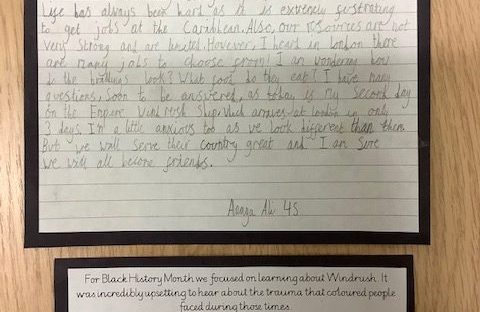 Life has always been hard as it is extremely fustrating
to get jobs at the Caribbean. Also, our resources are not
very strong and are limited. However, I heard in london there
are many jobs to choose from! I am wondering how
do the look? What food do they eat? I have many
questions, Soon to be answered, as today is my second day
on the Empire Windrush Ship. Which arrives at london in only
3 days. I'm a little anxious too as we look different than them
But we will serve their country great and I am sure
we will all become friends.
Ali 4S
For Black History Month we focused on learning about Windrush. It
was incredibly upsetting to hear about the trauma that coloured people
faced during those times.